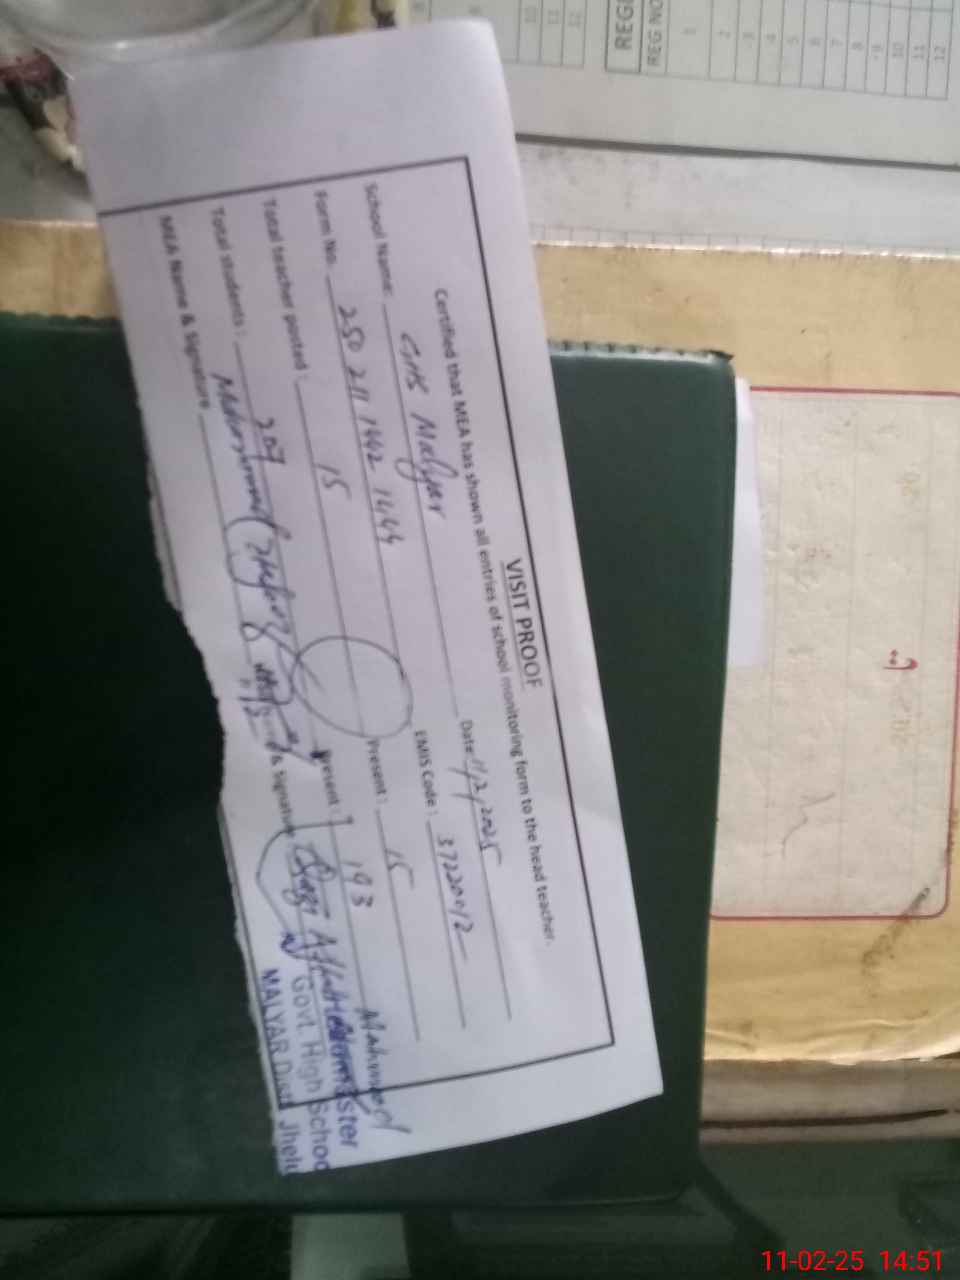 VISIT PROOF
Certified that MEA has shown all entries of school monitoring form to the head teacher.
School Name: GHS Malyar Date: 11/2/2025
Form No. 250 211 1442 1444 EMIS Code: 37220012
Total teacher posted: 15 Present: 15
Total students: 207 Present: 193
MEA Name & Signature Muhammad & Signature Qazi Mahmood
Headmaster
Govt. High School
MALYAR Distt Jhelu
REG NO
1
2
3
4
5
6
7
8
9
10
11
12
10
11
12
11-02-25 14:51